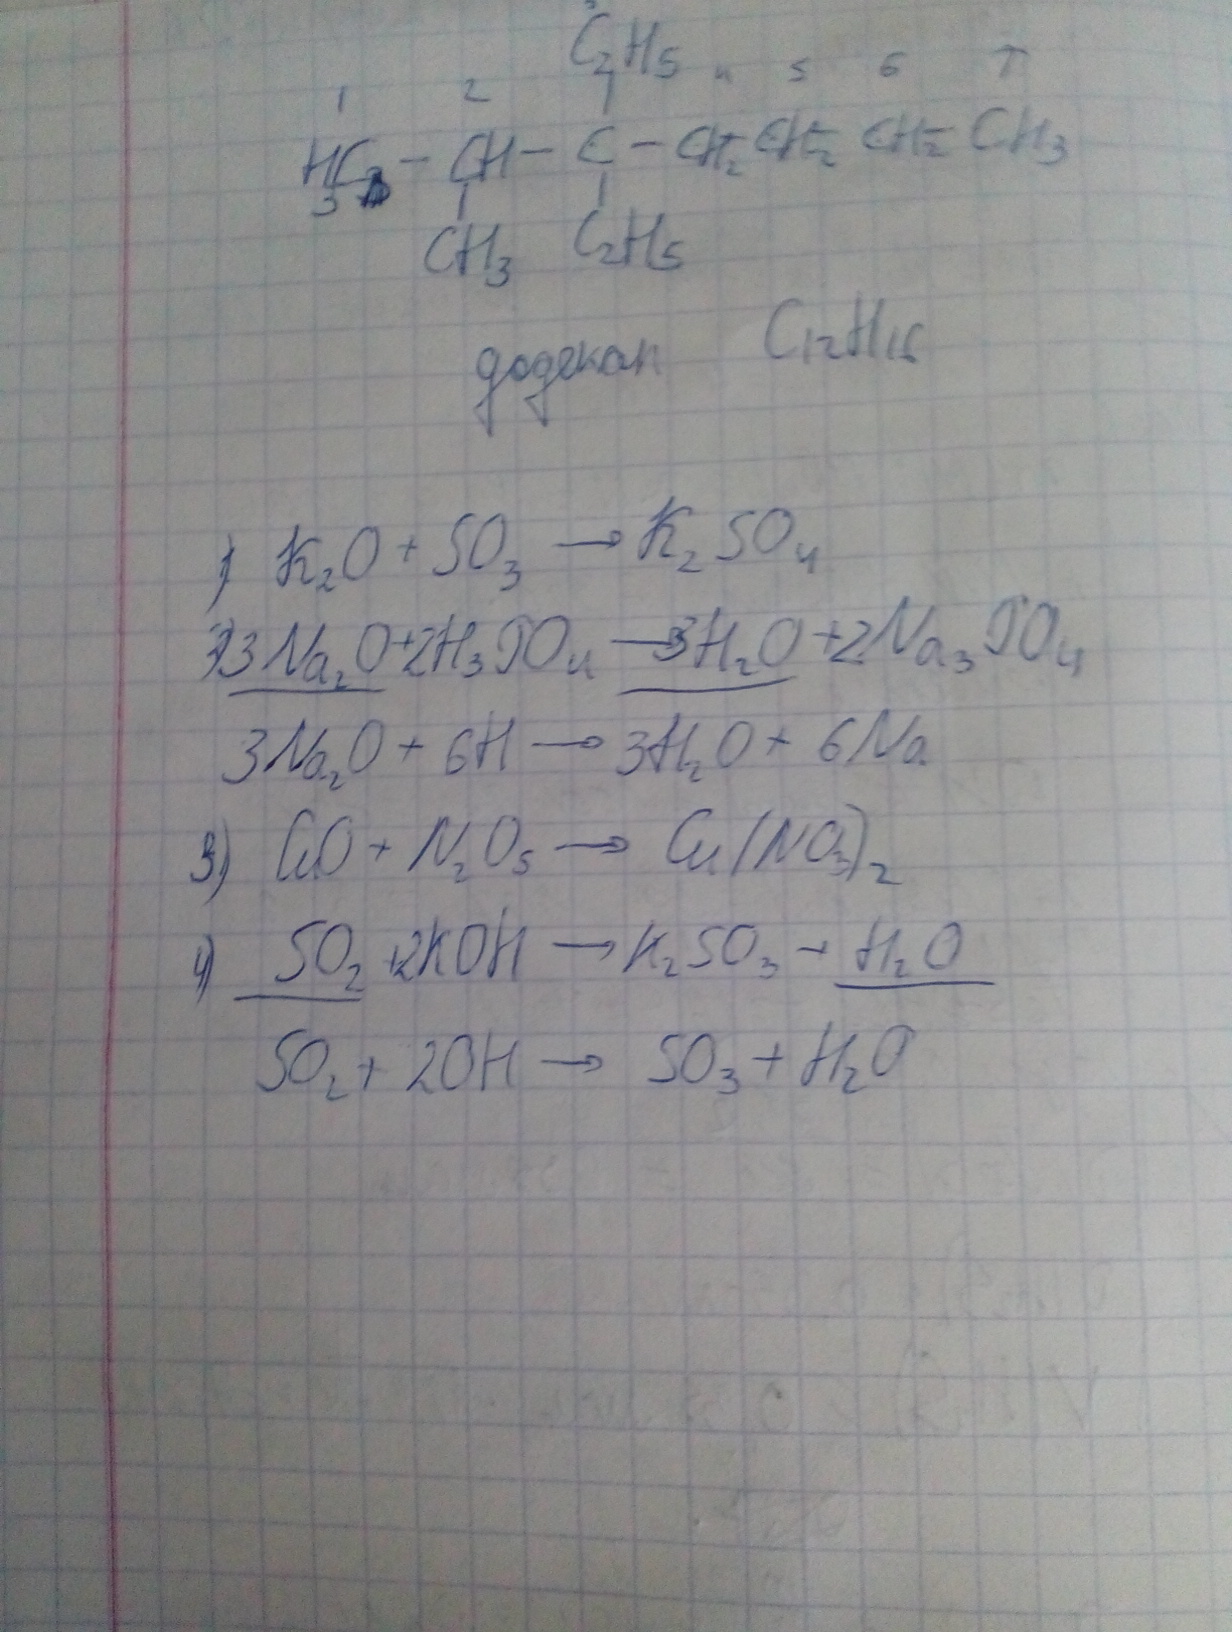 C₂H₅
1 2 3 4 5 6 7
H₃C – CH – C – CH₂ CH₂ CH₂ CH₃
CH₃ C₂H₅
додекан C₁₂H₁₆
1) K₂O + SO₃ → K₂SO₄
3Na₂O + 2H₃PO₄ → 3H₂O + 2Na₃PO₄
3Na₂O + 6H → 3H₂O + 6Na
3) CuO + N₂O₅ → Cu(NO₃)₂
4) SO₂ + 2KOH → K₂SO₃ + H₂O
SO₂ + 2OH → SO₃ + H₂O